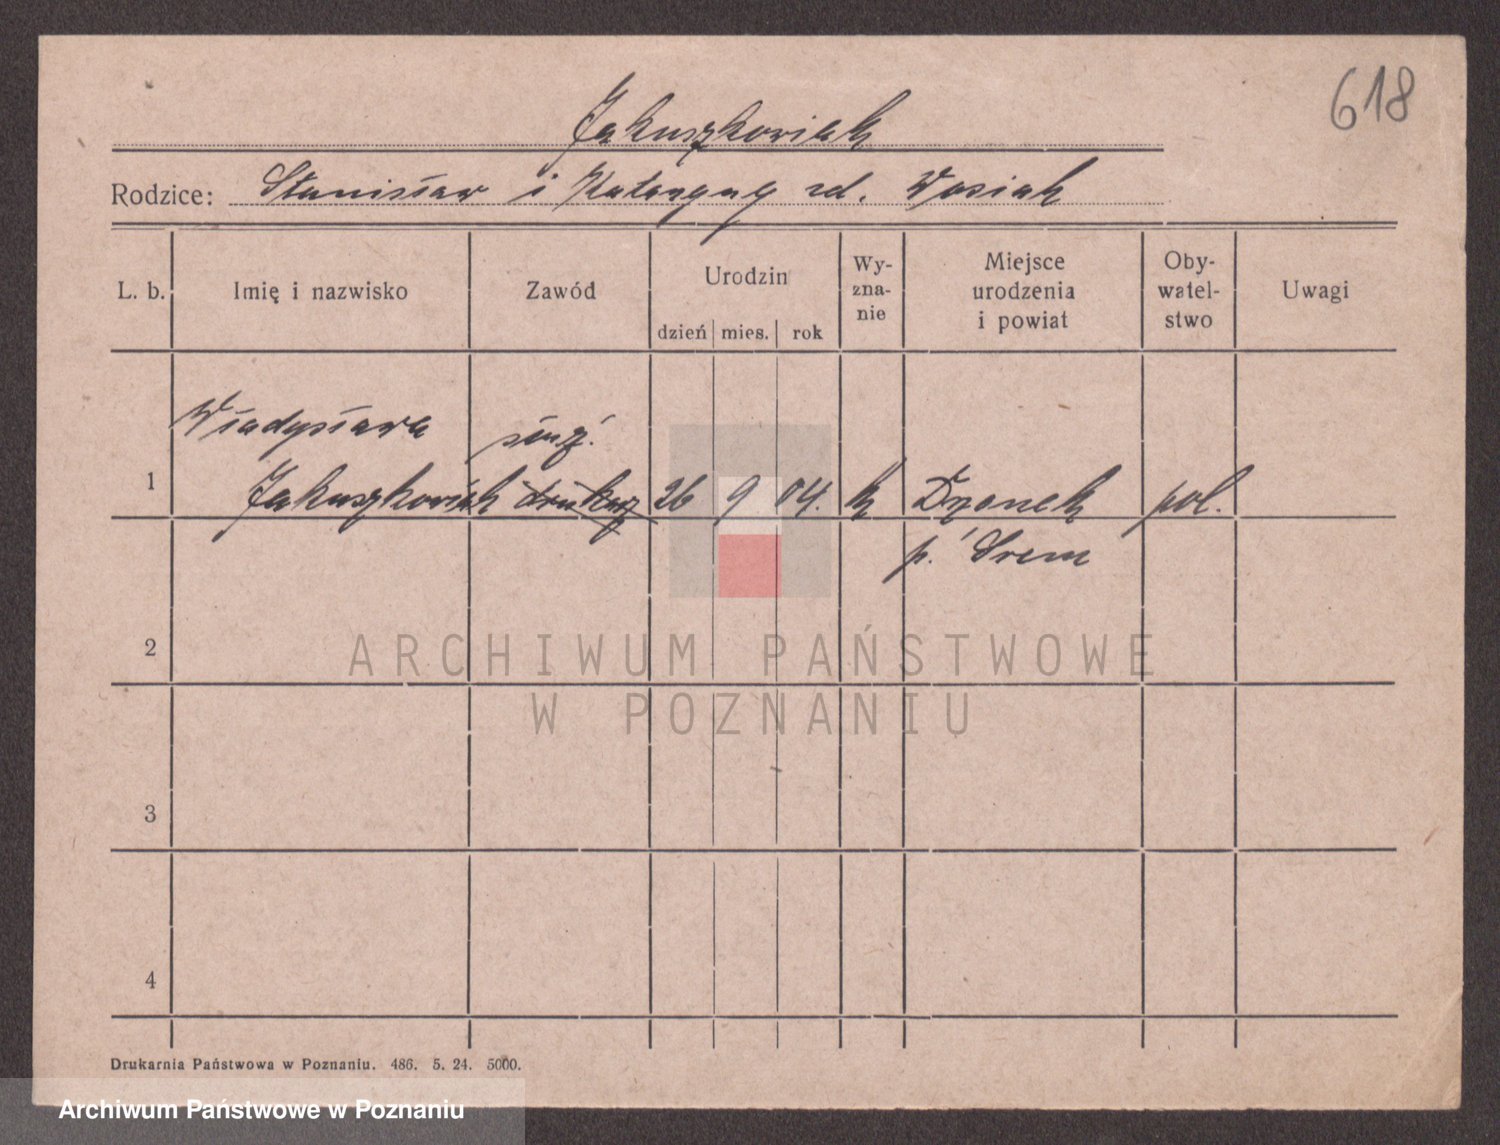 618
Jakuszkowiak
Rodzice: Stanisław i Katarzyny zd. Wosiak
L. b. Imię i nazwisko Zawód Urodzin dzień mies. rok Wy-zna-nie Miejsce urodzenia i powiat Oby-watel-stwo Uwagi
Władysława służ.
1 Jakuszkowiak drukarz 26 9 04. k Dronek pol.
p. Śrem
2
ARCHIWUM PAŃSTWOWE
W POZNANIU
3
4
Drukarnia Państwowa w Poznaniu. 486. 5. 24. 5000.
Archiwum Państwowe w Poznaniu